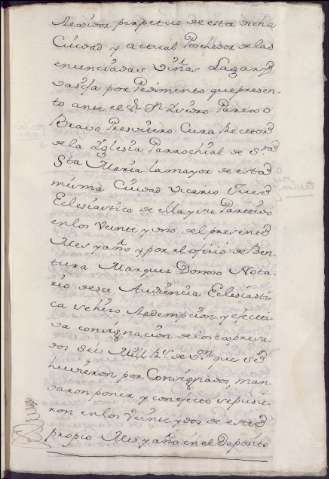 perpetuo de esta dicha
Ciudad y actual Poseedor de las
enunciadas viñas Lagar y
vasija por Pedimento que presen-
to ante el Sr. Dn. Pedro
Bravo Presvitero Cura Rector
de la Yglesia Parrochial de
Sta Maria la mayor de esta
misma Ciudad Vicario Juez
Eclesiastico de ella y su Partido
en los Veinte y uno del presente
Mes y año y por el oficio de Ven-
tura Marques Donoso Nota-
rio de su Audiencia Eclesiasti-
ca se hizo Redempcion y efecti-
va consignacion de los expresa-
dos Seis Mill
huvieron por Consignados, man-
daron poner y con efecto se pusie-
ron en los Veinte y dos de este
propio Mes y año en el Deposito